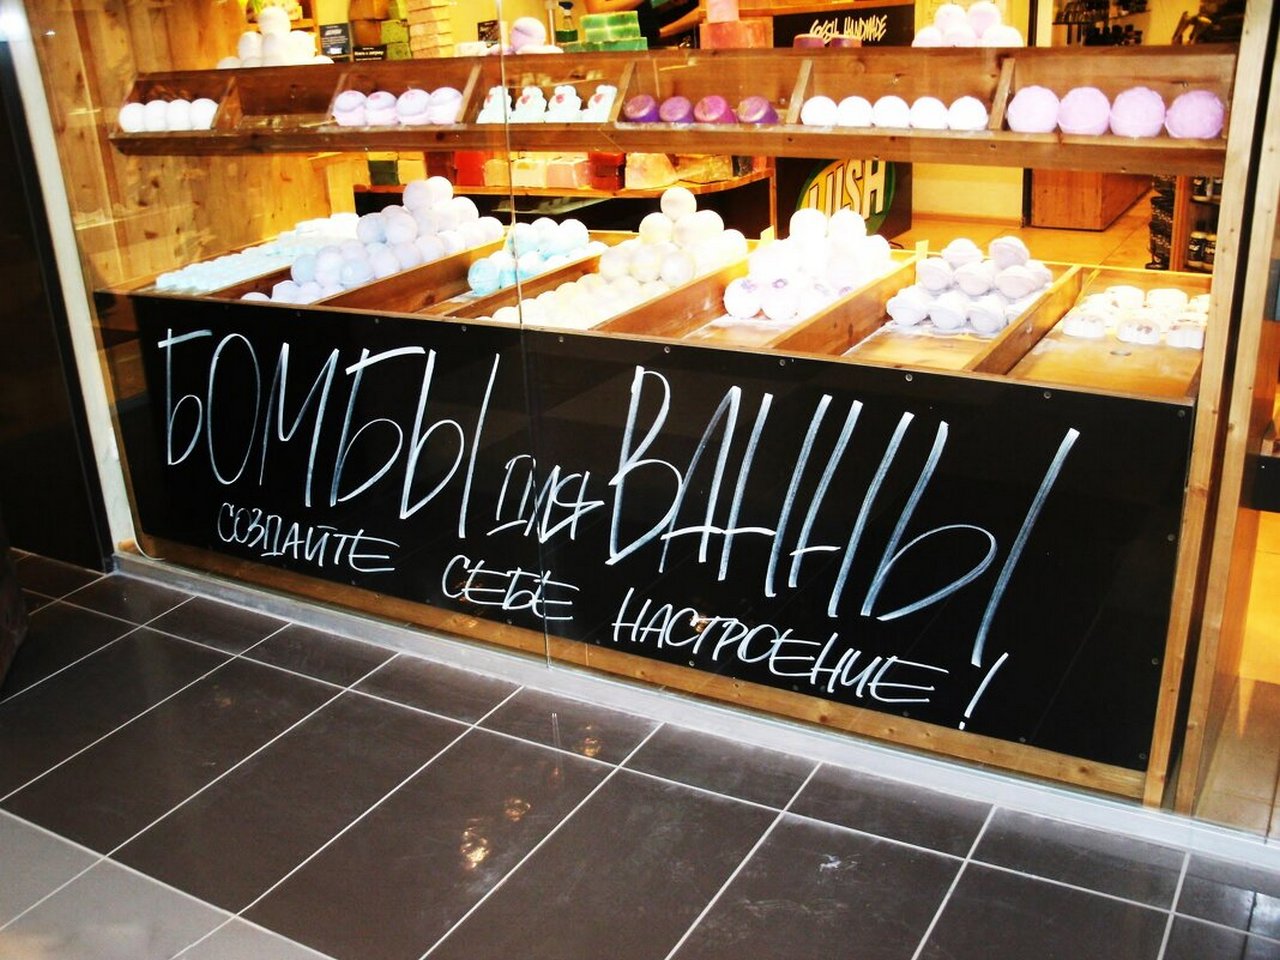 FRESH HANDMADE
LUSH
БОМБЫ ДЛЯ ВАННЫ
СОЗДАЙТЕ СЕБЕ НАСТРОЕНИЕ!